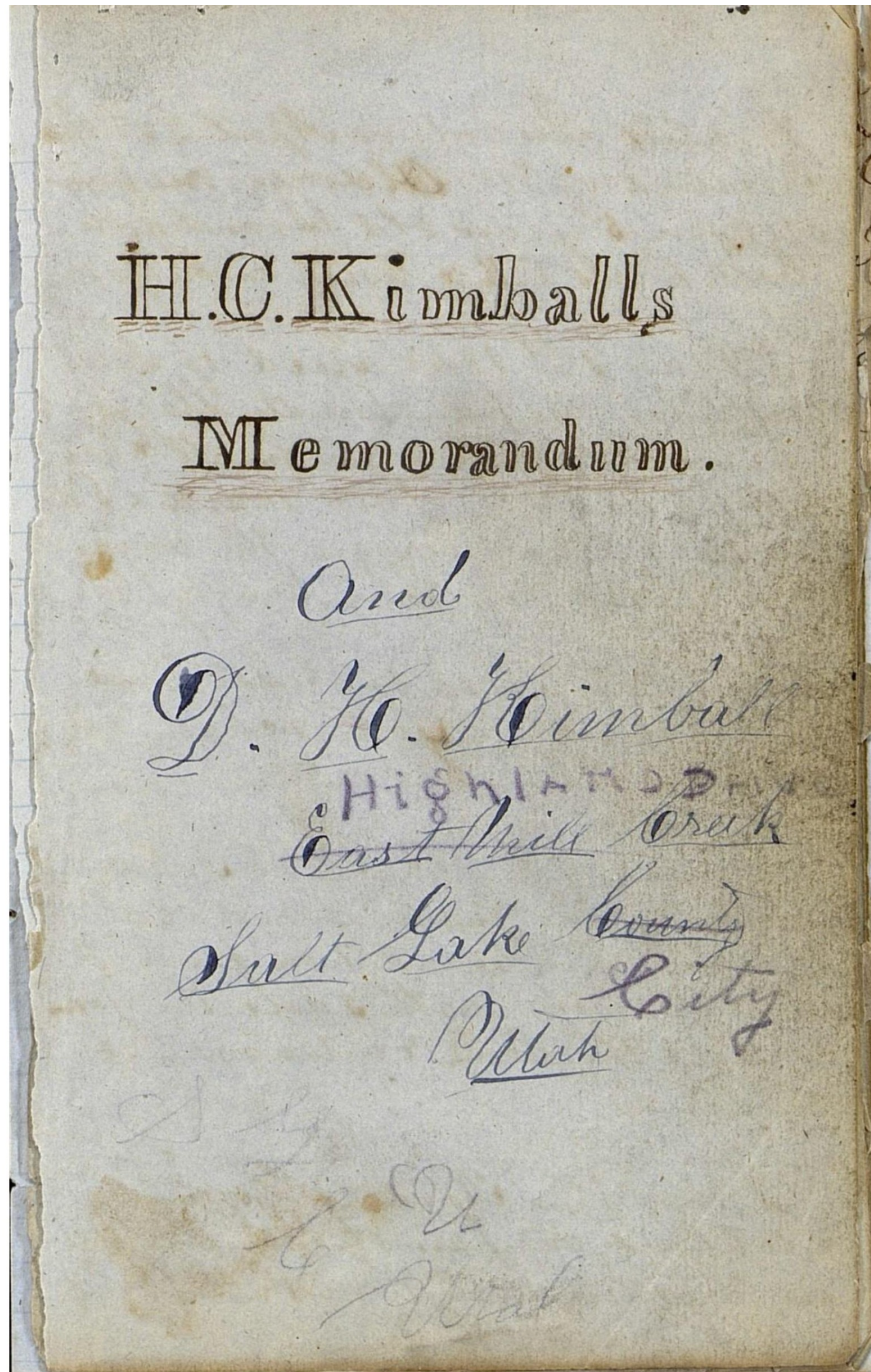 H.C. Kimballs
Memorandum.
And
D. H. Kimball
Highland Drive
East Mill Creek
Salt Lake County
City
Utah
C U
Utah